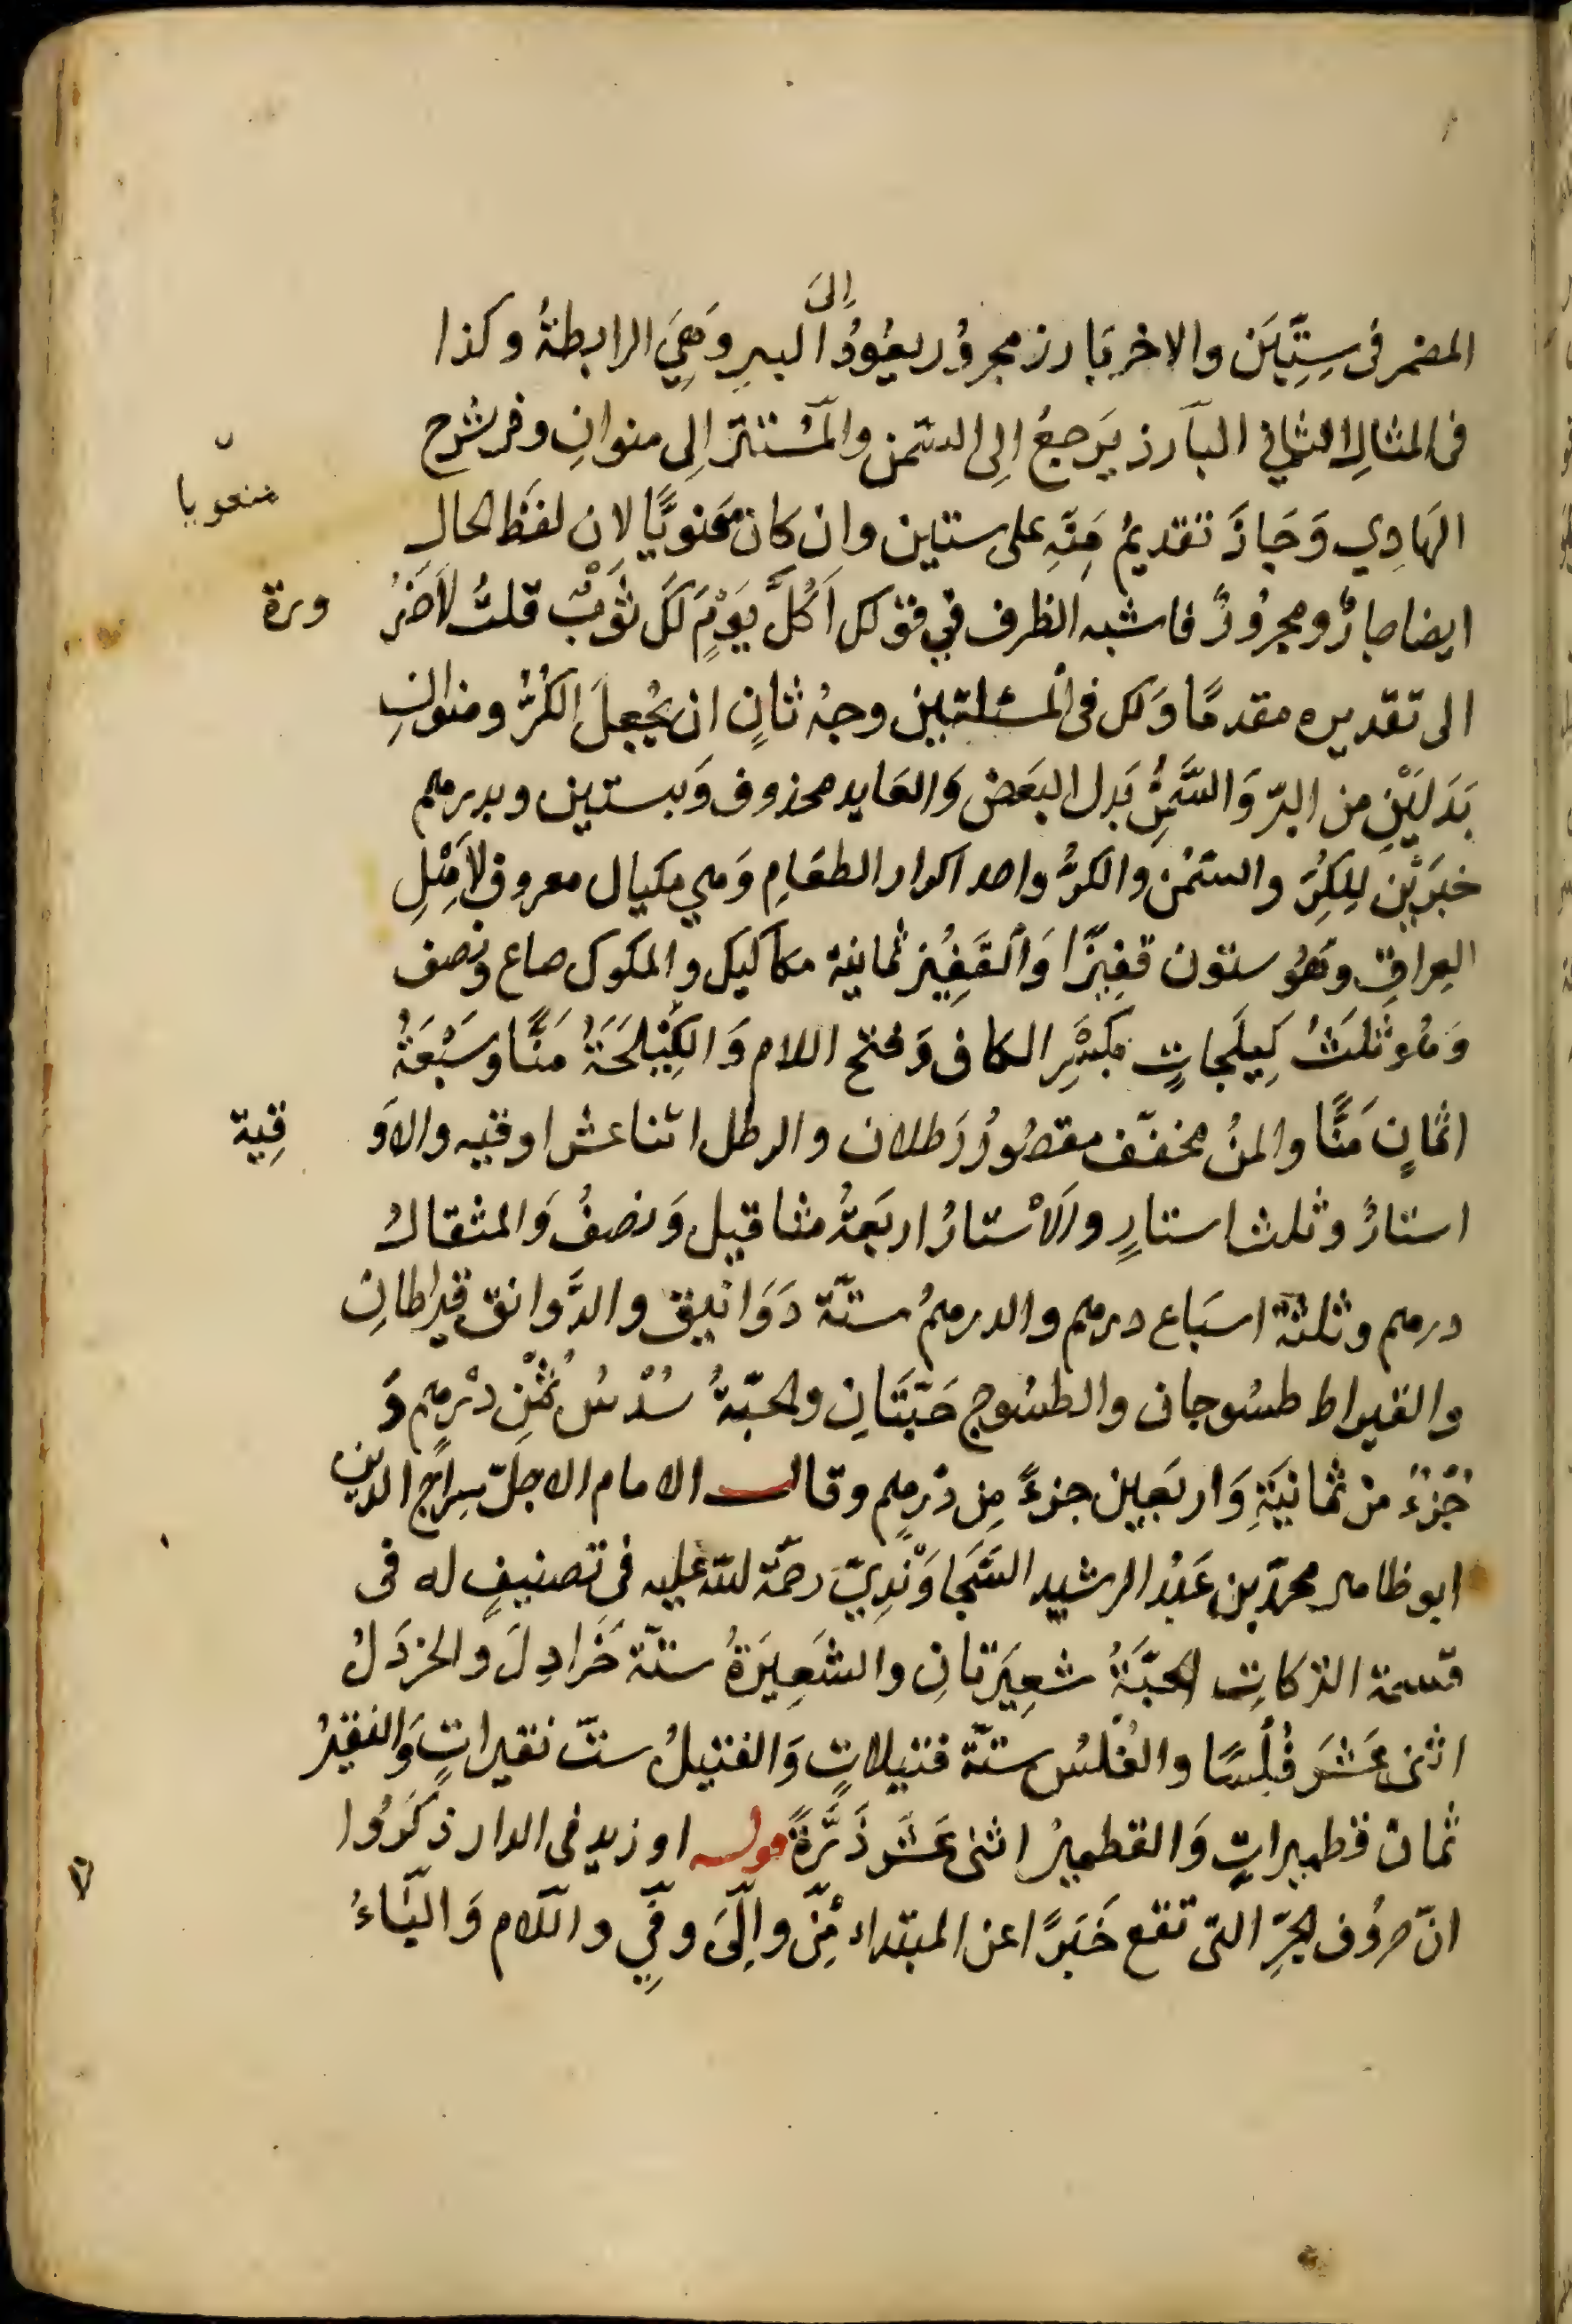 المضمر فى سِتِّيَن والاخر بَارز مجرُور يعُودُ اِلىَ البرِ وَهِيَ الرابطةُ وكذا
فى المثالِ الثانى البآرز يَرجعُ اِلى السّمن والمُستتر اِلى منوانِ وفى شرح
الهَادِي وَجَازَ تقديمُ مِنَهِ على ستين وان كان مَعنويًّا لان لفظ الحال
منعوّيا
ايضا جارٌ ومجرُورٌ فاشبه الظرف فِي قولك اَكُلَّ يَوْمٍ لَكَ ثَوْبٌ قلتُ لاَضَرُورة
الى تقديره مقدمًا وَلك فى المسئلتين وجهُ ثانٍ ان يُجعِلَ الكُرُّ ومنوانِ
بَدَلَيْنِ من البرّ وَالسَّمْنِ بَدل البَعَض وَالعَايد محذوف وَبستين وبدرهم
خبَرَيْن لِلكرِّ والسّمْن والكرُّ واحد اكرار الطعَامِ وَهي مكيال معروف لاَهْلِ
العِراقِ وهُو ستون قفِيزًا وَالقَفِيْز ثمانية مكاكيك والمكوك صاع ونصف
وَهُو ثَلثُ كِيلَجاتٍ بكَسْرِ الكاف وَفتح اللام وَالكِيْلَجَةُ مَنًّا وسَبْعَةُ
اثمانٍ مَنًّا والمنُ مخفّف مقصُورُ رَطلان والرطل اثنا عشر اوقيه والاَوقِية
استارٌ وثلث استارٍ والاَسْتارُ اربَعةُ مثاقيل وَنصفُ وَالمثقالُ
درهم وثلثةُ اسبَاع درهم والدرهمُ ستّة دَوَانيق والدَّوانق قيراطانِ
والقيراط طسُوجان والطسُوج حَبّتَانِ والحبّةُ سُدْسُ ثُمْنِ دْرهم وَ
جُزْءٌ من ثمانيَةِ وَاربَعين جزءً مِن دْرهم وقال الامام الاجلّ سِراج الدين
ابو ظاهر محمّد بن عَبْد الرشيد السَّجاوَنْدِيّ رحمَة الله عليه فى تصنيفٍ له فى
قسمة التركاتِ الحَبَّةُ شعِيَرتانِ والشَعِيَرةُ ستّة خَرَادِلَ والخردَلُ
اثنى عَشَر فُلْسًا والفُلسُ ستّة فتيلاتٍ وَالفتيلُ ستّ نقيراتٍ وَالنقيرُ
ثمان قطميراتٍ وَالقطميرُ اثنى عَشَر ذَرَّةً قوله او زيد فى الدار ذكَروُا
انّ حروُف الجرِّ التّى تقع خَبَرًا عن المبتداء مِنْ واِلَى وفِي واللّام وَالبَاءُ